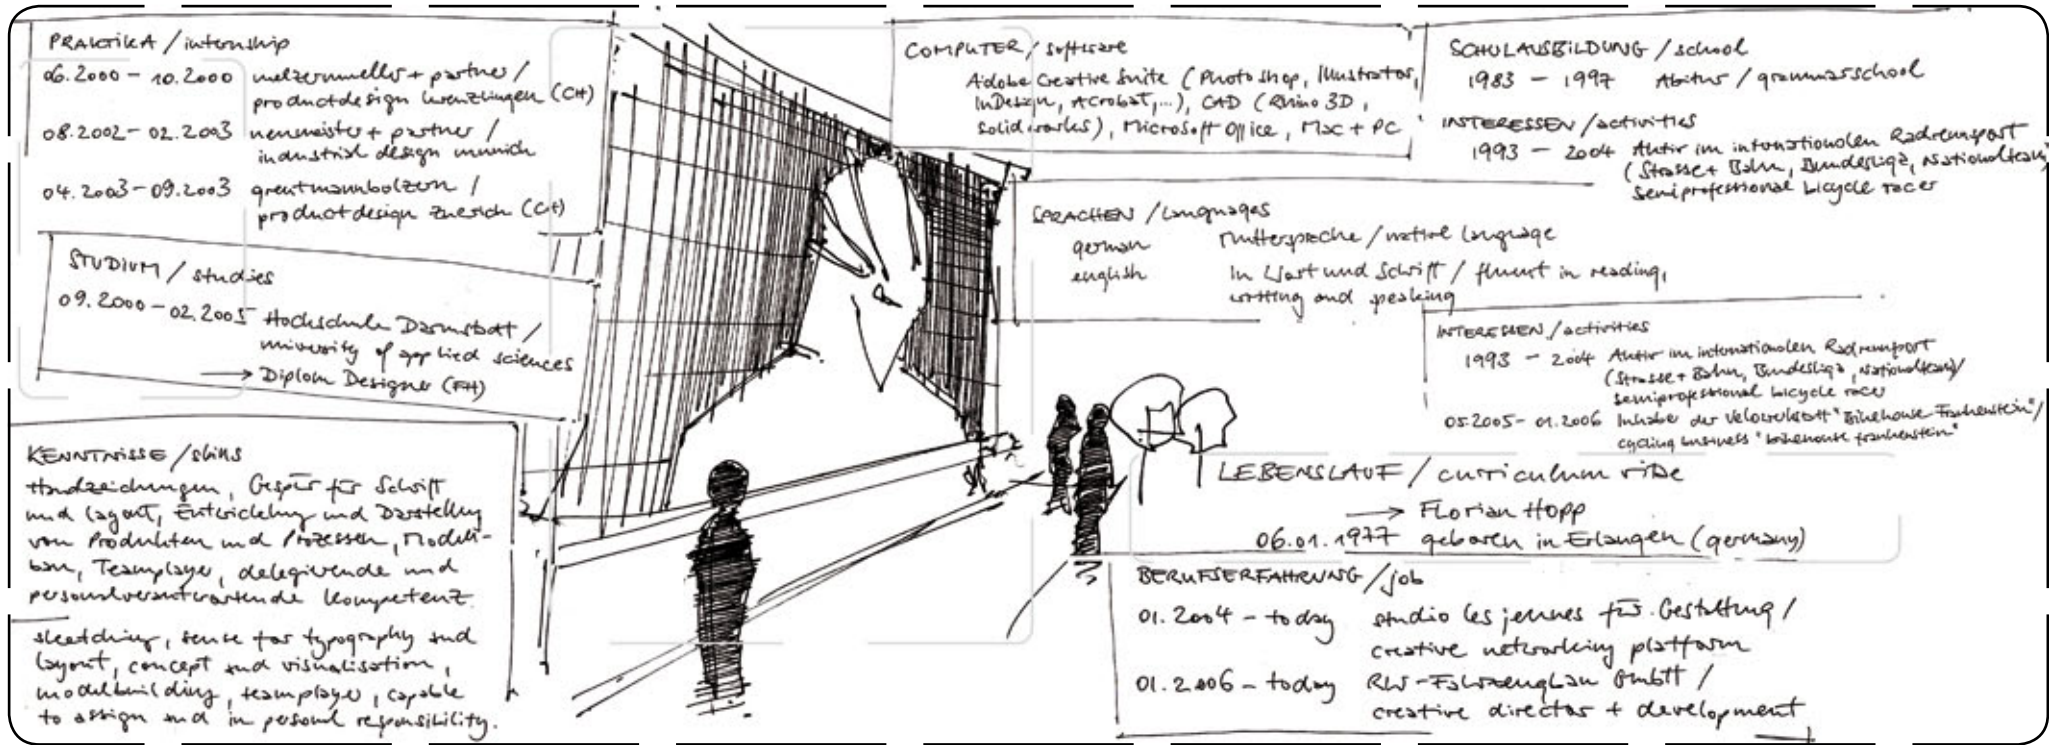 PRAKTIKA / internship
06.2000 – 10.2000 melzermueller + partner /
productdesign kreuzlingen (CH)
08.2002 – 02.2003 neumeister + partner /
industrial design munich
04.2003 – 09.2003 greutmannbolzern /
productdesign zuerich (CH)
STUDIUM / studies
09.2000 – 02.2005 Hochschule Darmstadt /
university of applied sciences
→ Diplom Designer (FH)
KENNTNISSE / skills
Handzeichnungen, Gespür für Schrift
und Layout, Entwicklung und Darstellung
von Produkten und Prozessen, Modell-
bau, Teamplayer, delegierende und
personalverantwortende Kompetenz.
sketching, sense for typography and
layout, concept and visualisation,
modelbuilding, teamplayer, capable
to assign and in personal responsibility.
COMPUTER / software
Adobe Creative Suite (Photoshop, Illustrator,
InDesign, Acrobat,...), CAD (Rhino 3D,
Solidworks), Microsoft Office, Mac + PC
SCHULAUSBILDUNG / school
1983 – 1997 Abitur / grammarschool
INTERESSEN / activities
1993 – 2004 Aktiv im internationalen Radrennsport
(Strasse + Bahn, Bundesliga, Nationalteam)
semiprofessional bicycle racer
SPRACHEN / languages
german Muttersprache / native language
english In Wort und Schrift / fluent in reading,
writting and speaking
INTERESSEN / activities
1993 – 2004 Aktiv im internationalen Radrennsport
(Strasse + Bahn, Bundesliga, Nationalteam)/
semiprofessional bicycle racer
05.2005 – 01.2006 Inhaber der Velowerkstatt "Bikehouse Frankenstein"/
cycling business "bikehouse frankenstein"
LEBENSLAUF / curriculum vitae
→ Florian Hopp
06.01.1977 geboren in Erlangen (germany)
BERUFSERFAHRUNG / job
01.2004 – today studio les jeunes für Gestaltung /
creative networking platform
01.2006 – today RLW-Fahrzeugbau GmbH /
creative director + development